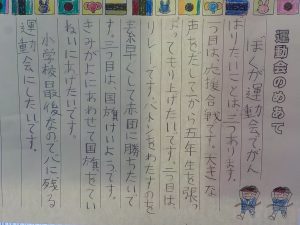 運動会のめあて
ぼくが運動会でがん
ばりたいことは三つあります。
一つ目は応援合戦です。大きな
声をだしてから五年生を張っ
ぱってもり上げたいです。二つ目は、
リレーです。バトンをわたすのを
素早くして赤田に勝ちたいで
す。三つ目は、国旗けいようです。
きみがよにあわせて国旗をてい
ねいにあげたいです。
小学校最後なので心に残る
運動会にしたいです。